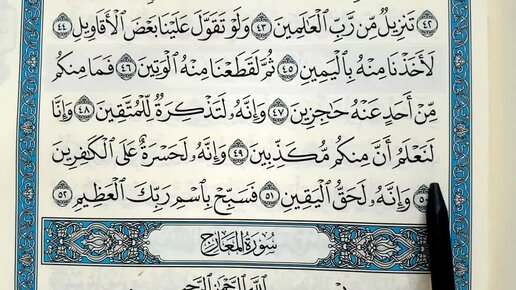 ٤٢ تَنزِيلٌ مِّن رَّبِّ ٱلْعَٰلَمِينَ ٤٣ وَلَوْ تَقَوَّلَ عَلَيْنَا بَعْضَ ٱلْأَقَاوِيلِ ٤٤
لَأَخَذْنَا مِنْهُ بِٱلْيَمِينِ ٤٥ ثُمَّ لَقَطَعْنَا مِنْهُ ٱلْوَتِينَ ٤٦ فَمَا مِنكُم
مِّنْ أَحَدٍ عَنْهُ حَٰجِزِينَ ٤٧ وَإِنَّهُۥ لَتَذْكِرَةٌ لِّلْمُتَّقِينَ ٤٨ وَإِنَّا
لَنَعْلَمُ أَنَّ مِنكُم مُّكَذِّبِينَ ٤٩ وَإِنَّهُۥ لَحَسْرَةٌ عَلَى ٱلْكَٰفِرِينَ
٥٠ وَإِنَّهُۥ لَحَقُّ ٱلْيَقِينِ ٥١ فَسَبِّحْ بِٱسْمِ رَبِّكَ ٱلْعَظِيمِ ٥٢
سُورَةُ المَعَارِجِ
ٱللَّهِ ٱلرَّحْمَٰنِ ٱلرَّحِيمِ